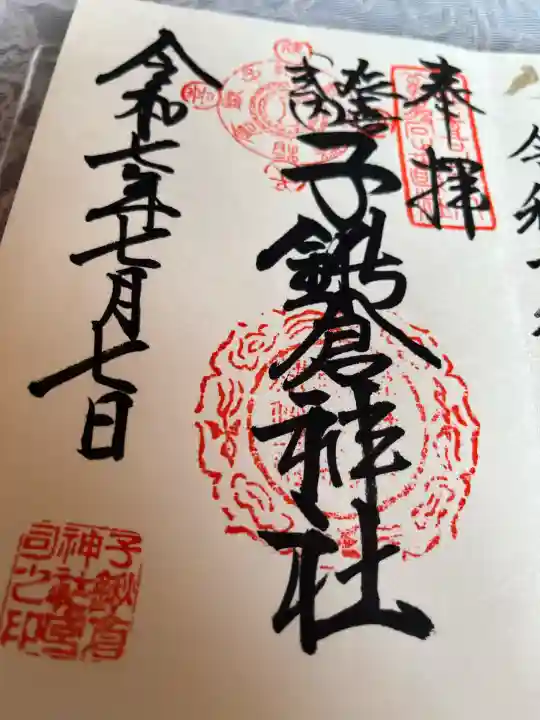 令和
奉拝
延喜
式内
子鍬倉神社
令和七年七月七日
子鍬倉
神社宮
司之印